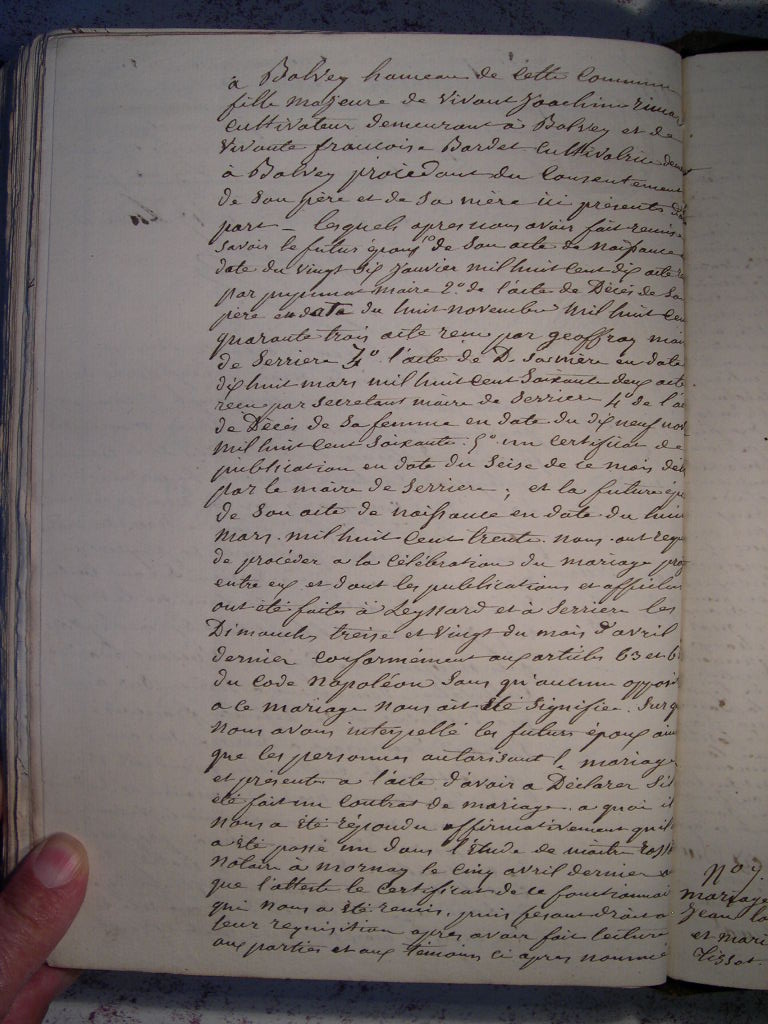 à Bolvey hameau de cette Commune
fille majeure de vivant Joachim
cultivateur demeurant à Bolvey et de
vivante francoise Bardet cultivatrice
à Bolvey procédant du Consentement
de son père et de sa mère ici présents
part – lesquels apres nous avoir fait remis
savoir le futur époux 1° de son acte de naissance
date du vingt six janvier mil huit cent dix acte
par maire 2° de l'acte de Décès de so
père en data du huit novembre mil huit cen
quarante trois acte recu par geoffray mai
de Serriere 3° l'acte de D. sa mère en date
dix huit mars mil huit cent soixante deux acte
recu par secretant maire de Serriere 4° de l'a
de Décès de sa femme en date du dix neuf no
mil huit cent soixante 5° un certificat de
publication en date du seise de ce mois
par le maire de Serriere ; et la future ép
de son acte de naissance en date du huit
mars mil huit cent trente nous ont requ
de procéder a la célébration du mariage proj
entre eux et dont les publications et affiches
ont été faites à Leyssard et à Serriere les
Dimanches treise et vingt du mois d'avril
dernier conformément aux articles 63 et 6
du code Napoléon sans qu'aucune opposi
a ce mariage nous ait été signifiée. Sur q
nous avons interpellé les futurs époux ain
que les personnes autorisant l. mariage
et présentes a l'acte d'avoir a Déclarer s'il
été fait un contrat de mariage a quoi il
nous a été répondu affirmativement qu'il
a été passé un dans l'étude de maitre
notaire à mornay le cinq avril dernier
que l'atteste le certificat de ce fonctionnai
qui nous a été remis, puis fesant droit a
leur requisition apres avoir fait lecture
aux parties et aux témoins ci apres nommé
N° 9.
mariage
Jean
et mari
Tissot.